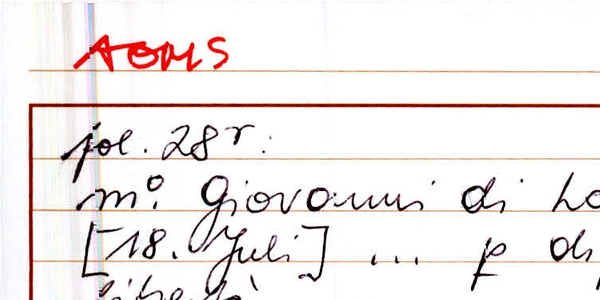 AOMS
fol. 28r.
m⁰. Giovanni di
[18. Juli] ... p